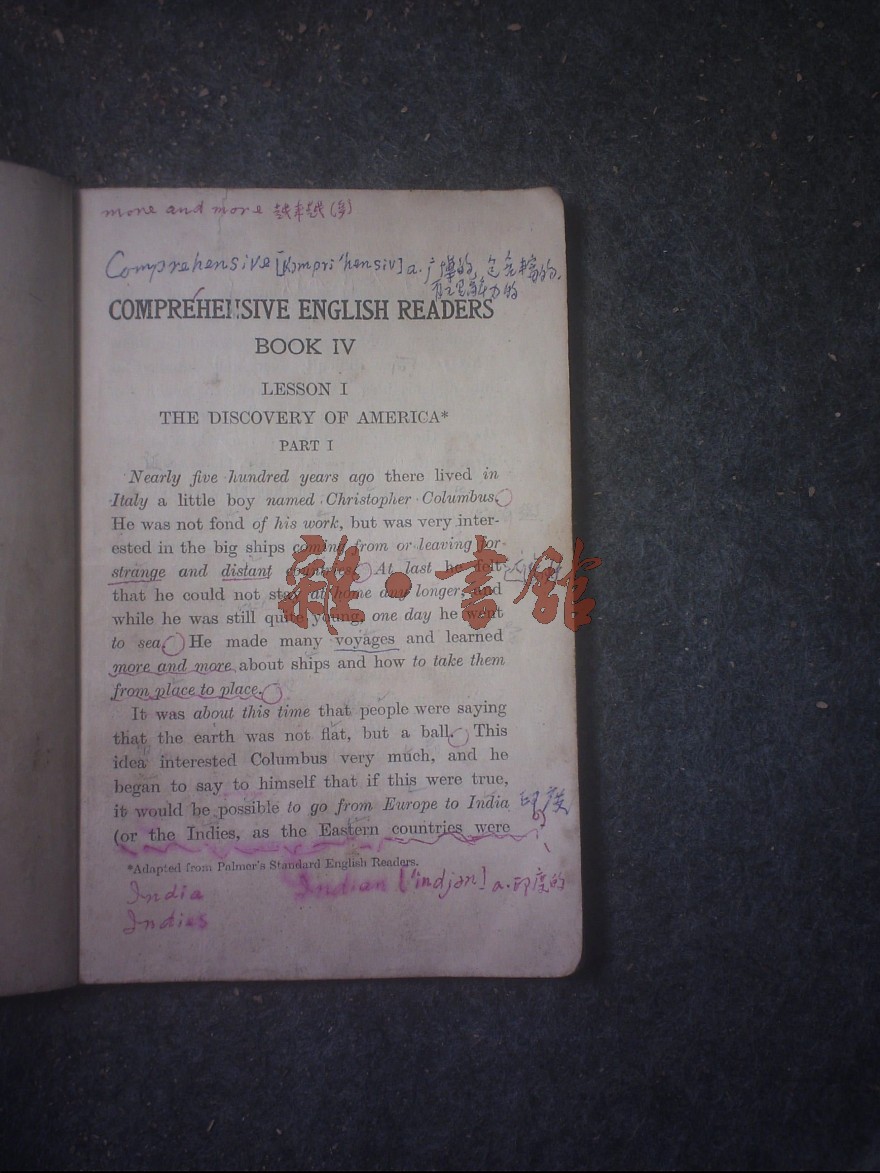 more and more 越来越(多)
Comprehensive [kɔmpri'hensiv] a. 广博的, 包含丰富的,
有理解力的
COMPREHENSIVE ENGLISH READERS
BOOK IV
LESSON I
THE DISCOVERY OF AMERICA*
PART I
Nearly five hundred years ago there lived in
Italy a little boy named Christopher Columbus.
He was not fond of his work, but was very inter-
ested in the big ships coming from or leaving for
strange and distant countries. At last he felt
that he could not stay at home any longer, and
while he was still quite young, one day he went
to sea. He made many voyages and learned
more and more about ships and how to take them
from place to place.
It was about this time that people were saying
that the earth was not flat, but a ball. This
idea interested Columbus very much, and he
began to say to himself that if this were true,
it would be possible to go from Europe to India 印度
(or the Indies, as the Eastern countries were
*Adapted from Palmer's Standard English Readers.
India Indian ['indjən] a. 印度的
Indies
雜·書館